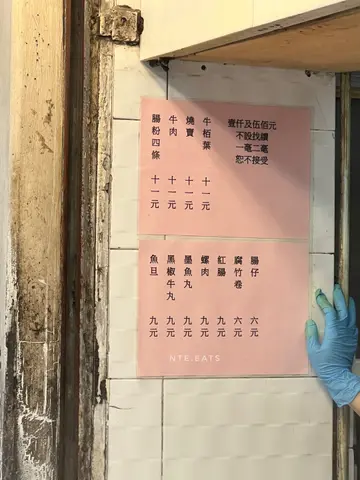 壹仟及伍佰元
不設找續
一毫二毫
恕不接受
牛栢葉 十一元
燒賣 十一元
牛肉 十一元
腸粉四條 十一元
腸仔 六元
腐竹卷 六元
紅腸 九元
螺肉 九元
墨魚丸 九元
黑椒牛丸 九元
魚旦 九元
NTE.EATS